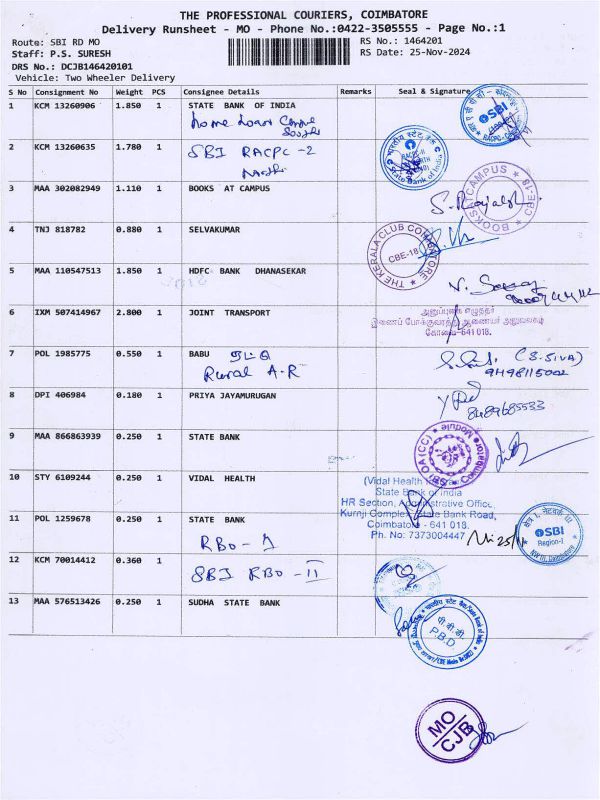 THE PROFESSIONAL COURIERS, COIMBATORE
Delivery Runsheet - MO - Phone No.:0422-3505555 - Page No.:1
Route: SBI RD MO
Staff: P.S. SURESH
DRS No.: DCJB146420101
Vehicle: Two Wheeler Delivery
RS No.: 1464201
RS Date: 25-Nov-2024
S No Consignment No Weight PCS Consignee Details Remarks Seal & Signature
1 KCM 13260906 1.850 1 STATE BANK OF INDIA
Home Loan
SBI
2 KCM 13260635 1.780 1
SBI RACPC -2
State Bank of India
3 MAA 302082949 1.110 1 BOOKS AT CAMPUS
BOOKS AT CAMPUS CBE-18
4 TNJ 818782 0.880 1 SELVAKUMAR
THE KERALA CLUB COIMBATORE
CBE-18
5 MAA 110547513 1.850 1 HDFC BANK DHANASEKAR
6 IXM 507414967 2.800 1 JOINT TRANSPORT
இணைப் போக்குவரத்து ஆணையர் அலுவலகம்
கோவை-641 018.
7 POL 1985775 0.550 1 BABU
Rural A-R
(S.SIVA)
9498115002
8 DPI 406984 0.180 1 PRIYA JAYAMURUGAN
8489685533
9 MAA 866863939 0.250 1 STATE BANK
SBI OA (CC) Coimbatore Module
10 STY 6109244 0.250 1 VIDAL HEALTH
(Vidal Health
State Bank of India
HR Section, Administrative Office,
Kurnji Complex, State Bank Road,
Coimbatore - 641 018.
Ph. No: 7373004447
11 POL 1259678 0.250 1 STATE BANK
RBO - I
SBI
Region-I
12 KCM 70014412 0.360 1
SBI RBO - II
13 MAA 576513426 0.250 1 SUDHA STATE BANK
पी.बी.डी.
P.B.D.
MO
CJB